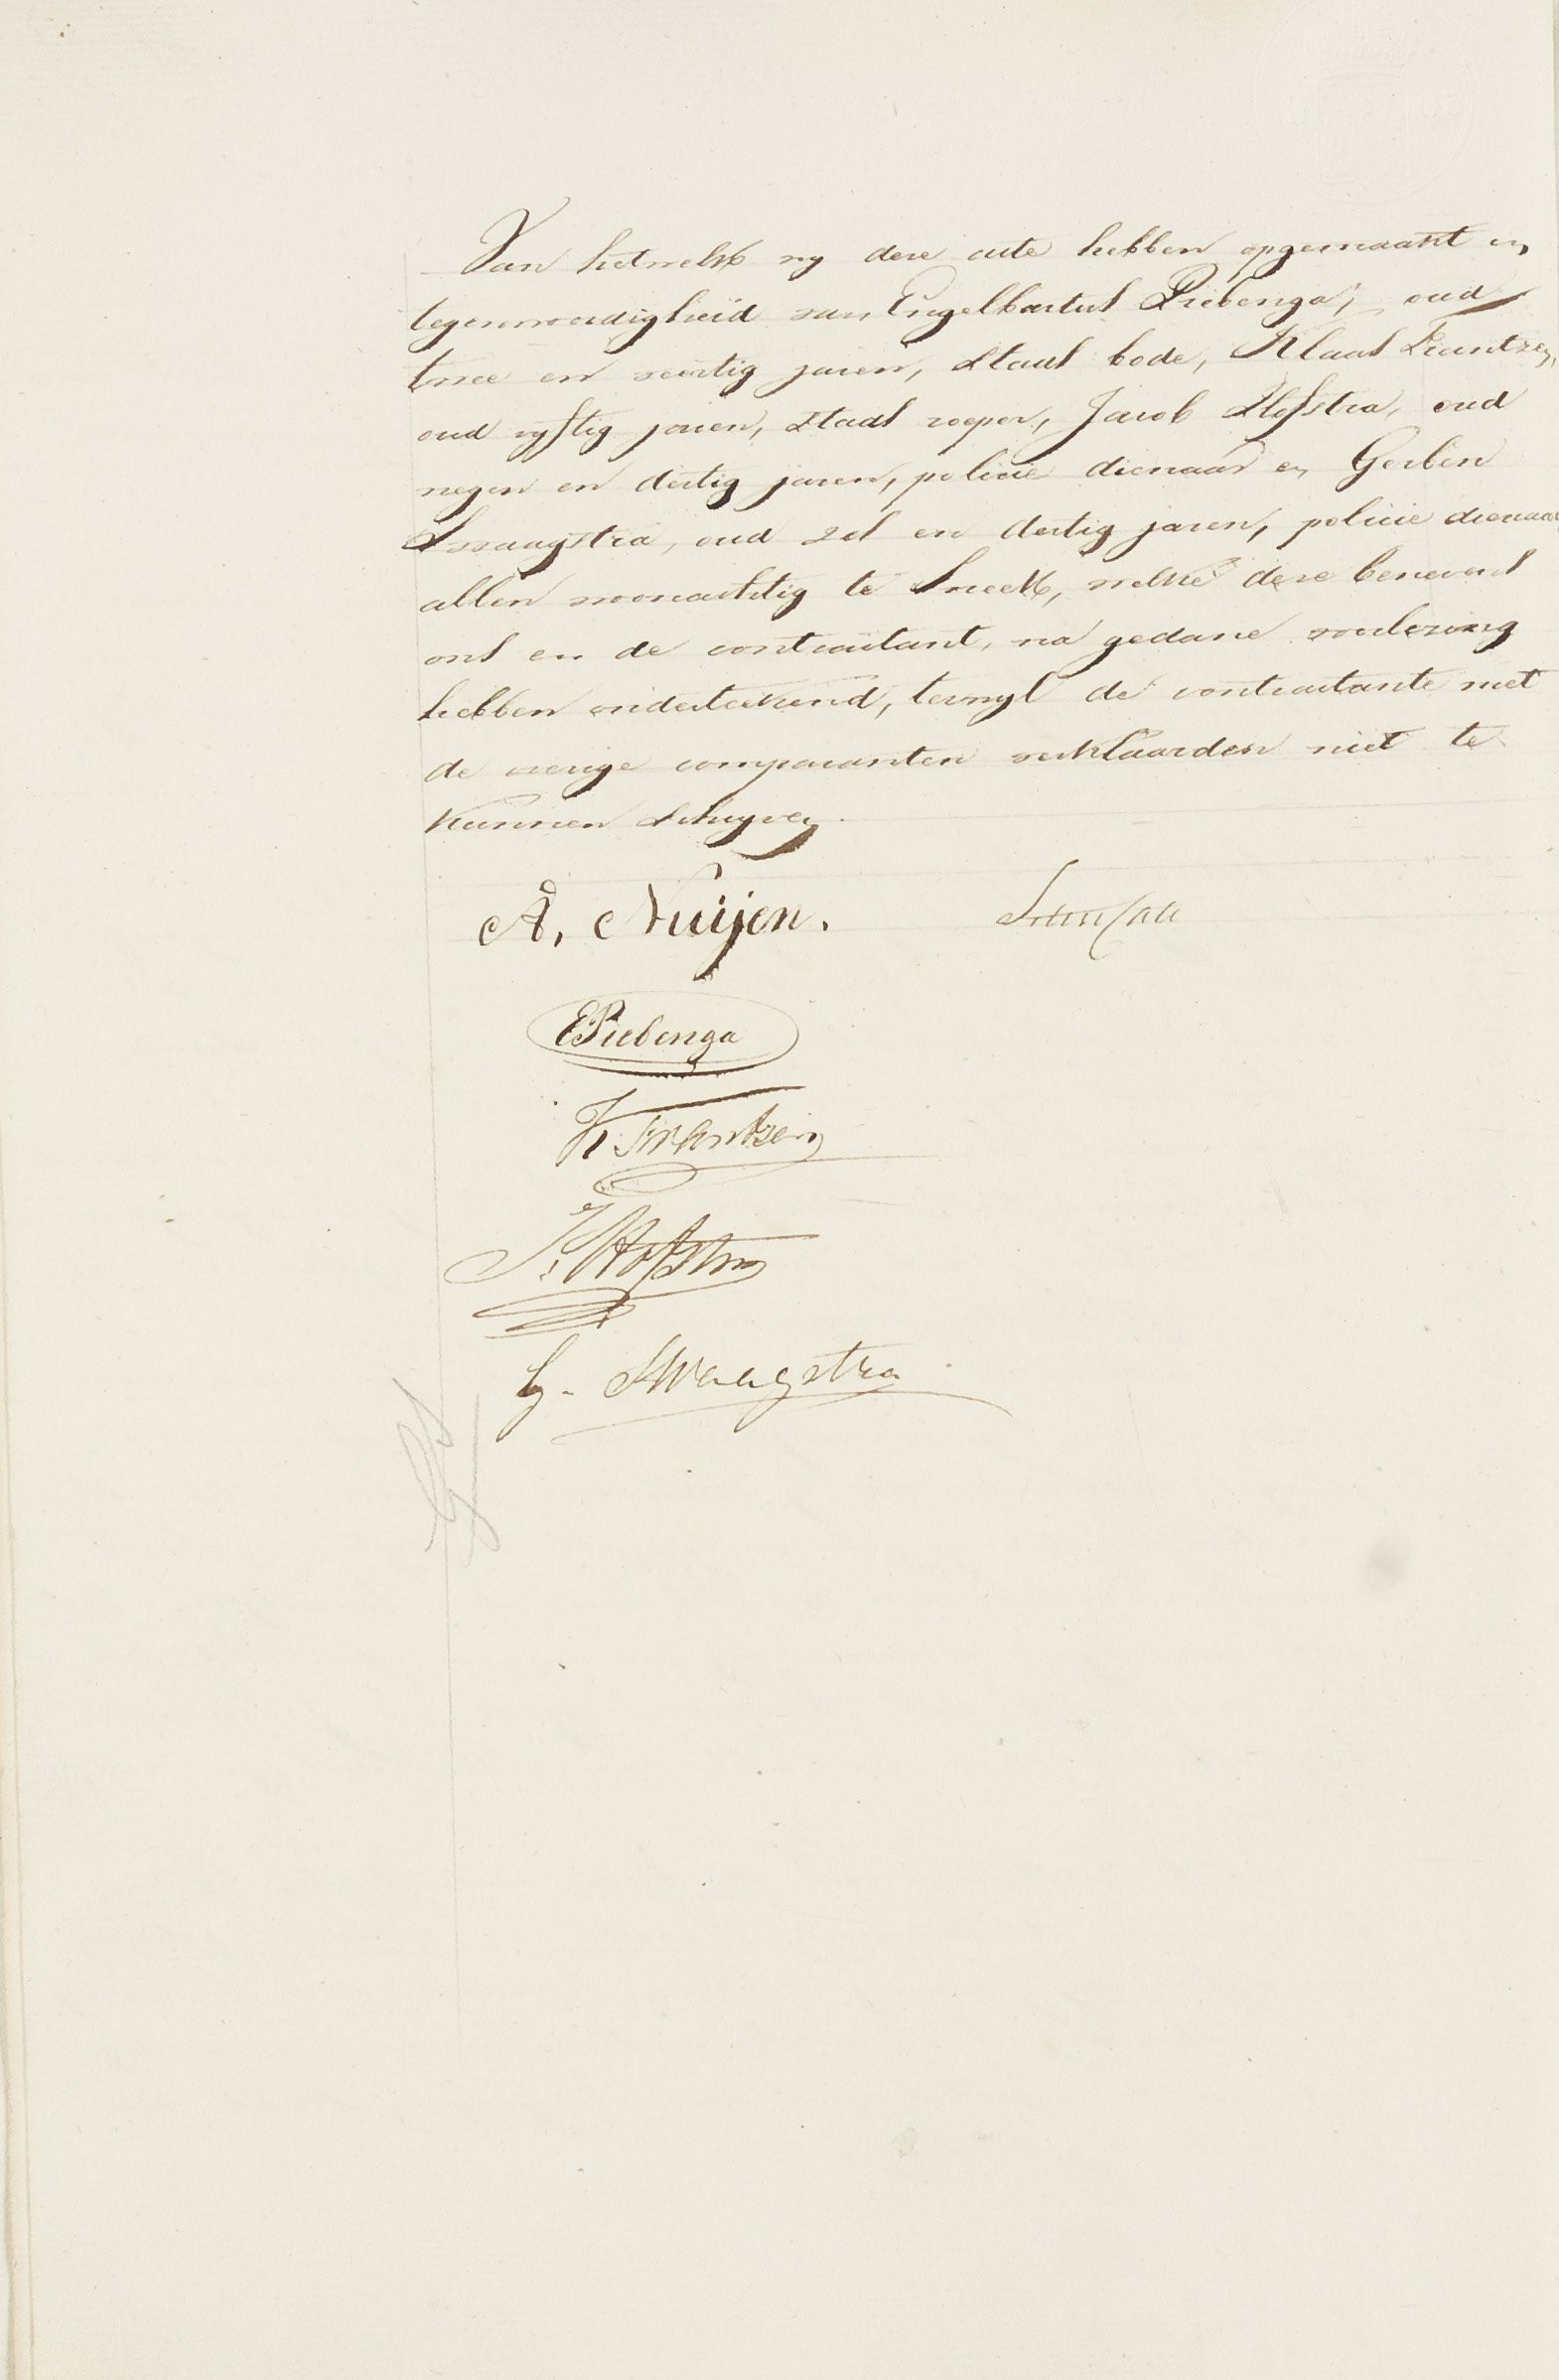 Van hetwelk wy deze acte hebben opgemaakt in
tegenwoordigheid van Engelbartus Piebenga, oud
twee en veertig jaren, Stads bode, Klaas Frantzen,
oud vyftig jaren, Stads roeper, Jacob Hofstra, oud
negen en dertig jaren, policie dienaar en Gerben
Swaagstra, oud zes en dertig jaren, policie dienaar
allen woonachtig te Sneek, welke deze benevens
ons en de contractant, na gedane voorlezing
hebben onderteekend, terwyl de contractante met
de overige comparanten verklaarden niet te
kunnen schryven.
A. Nuijen.
EPiebenga
K Frantzen
J. Hofstra
G. Swaagstra